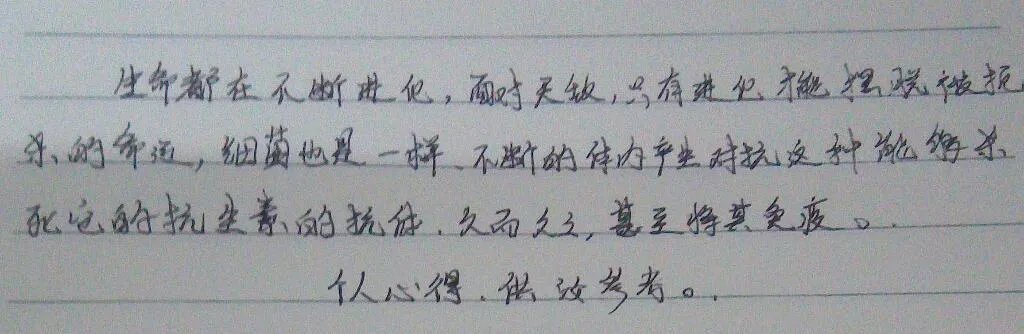 生命都在不断进化，面对天敌，只有进化才能摆脱被扼
杀的命运，细菌也是一样、不断的体内产生对抗这种能够杀
死它的抗生素的抗体．久而久之，甚至将其免疫。．
个人心得．供汝参考。．